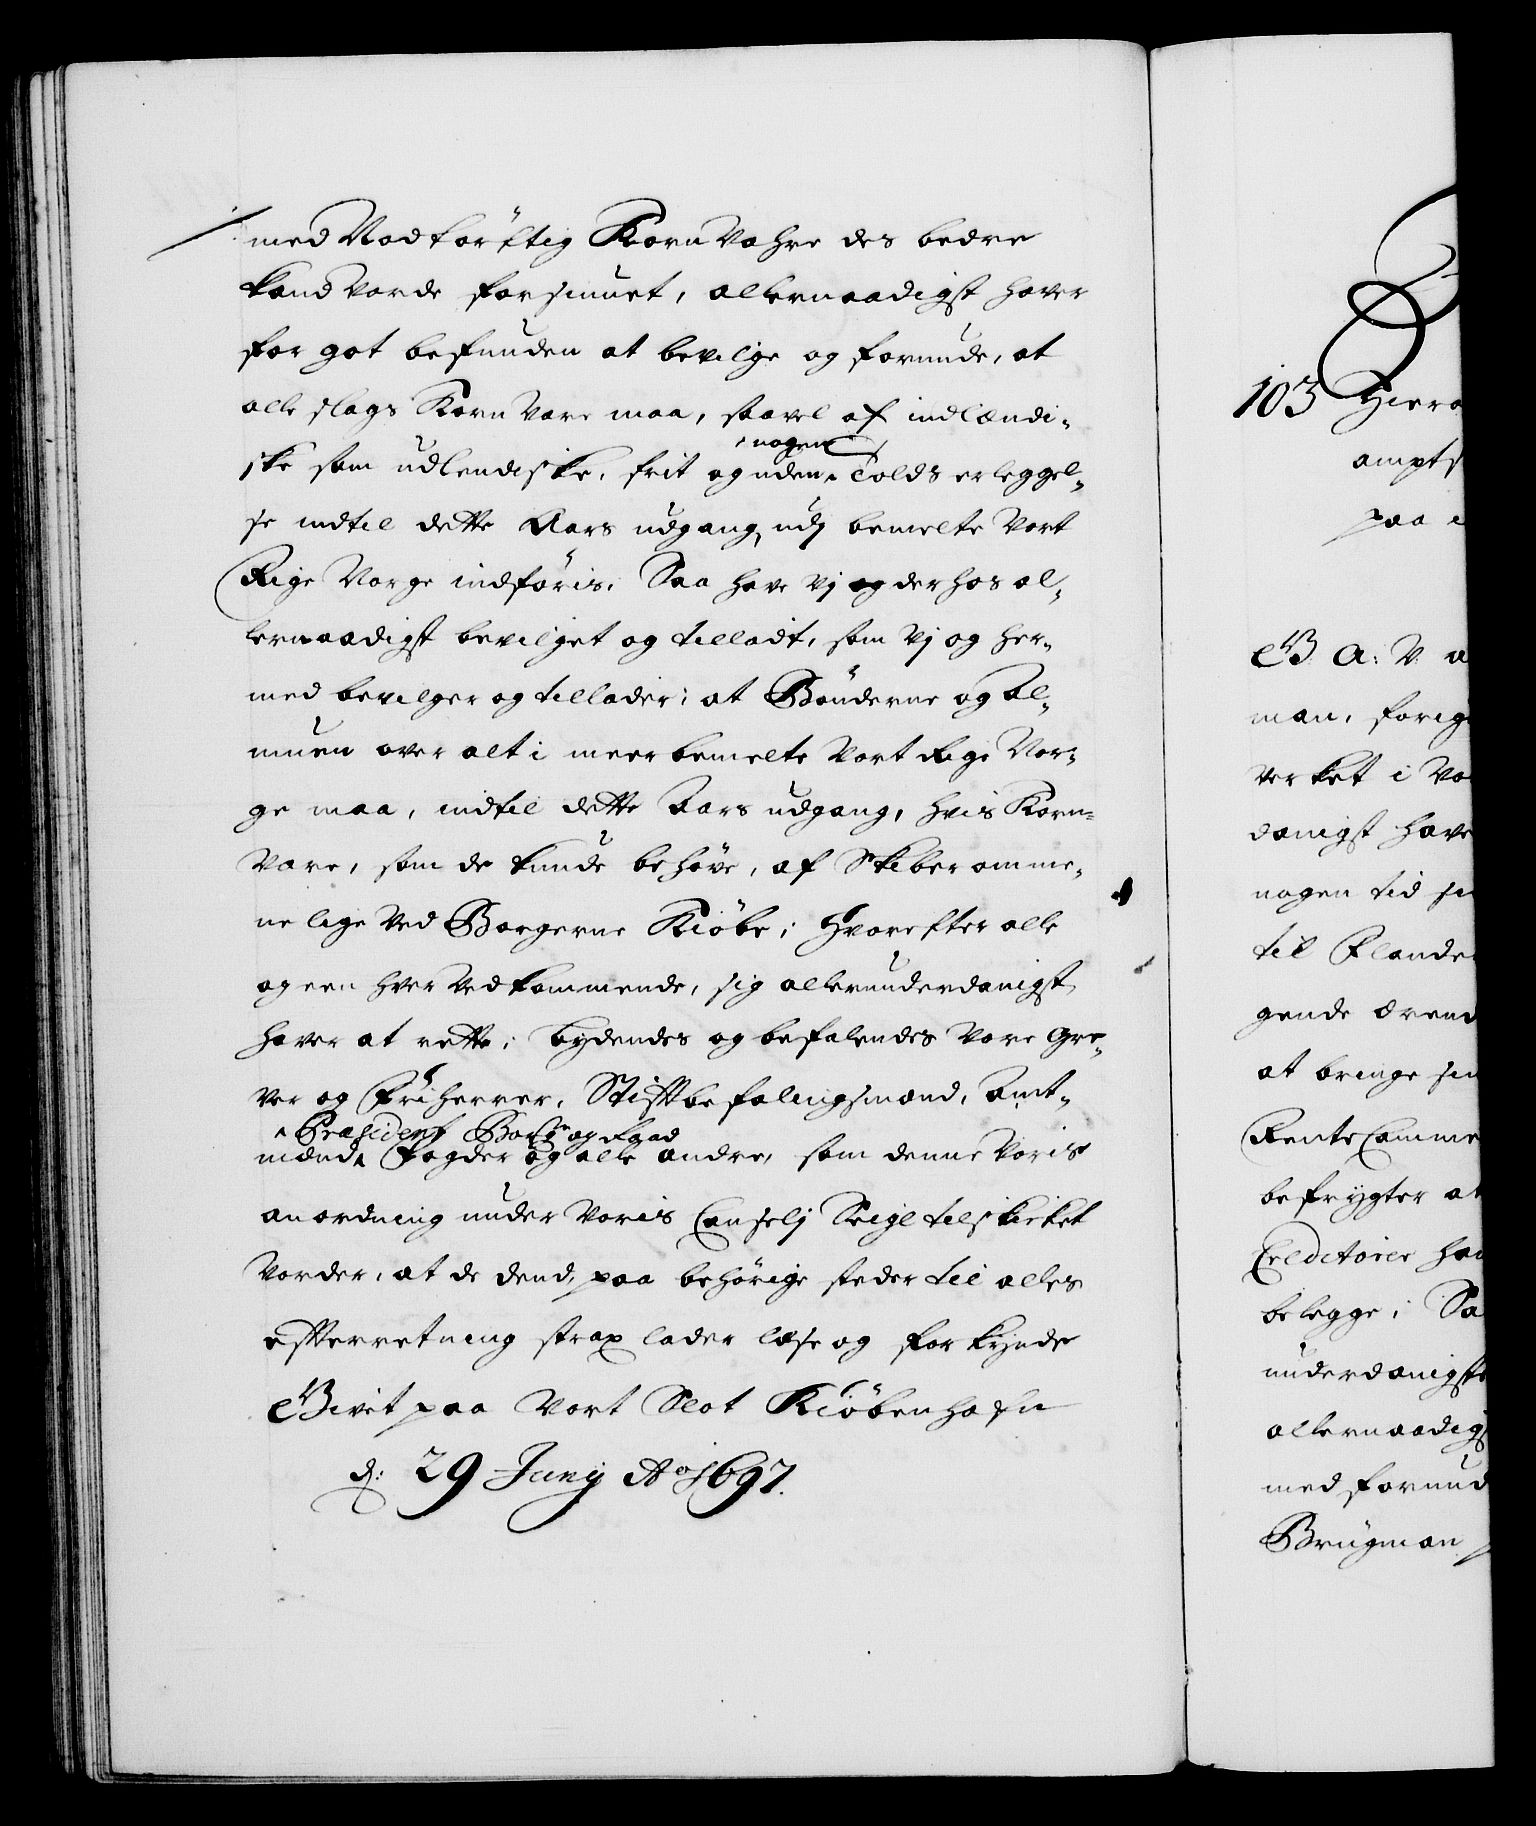 med Nodtörftig Korn Vahre des bedre
kand vorde forsiunet, allernaadigst hafver
for got befunden at bevilge og forunde, at
alle slags Korn Vare maa, saavel af indlændi-
ske som udlendiske, frit og uden nogen Tolds erleggel-
se indtil dette Aars udgang, udj bemelte Vort
Rige Norge indföris. Saa have Vj og derhos al-
lernaadigst bevilget og tilladt, som Vj og her-
med bevilger og tillader; at Bönderne og Al-
muen over alt i meerbemelte Vort Rige Nor-
ge maa, indtil dette Aars udgang, hvis Korn-
Vare, som de kunde behöve, af Skiberommene
ne lige ved Borgerne Kiöbe; Hvorefter alle
og een hver vedkommende, sig allerunderdanigst
hafver at rette; bydendes og befalendes Vore Gre-
ver og Friherrer, Stiftbefalingsmænd, Amt-
mænd, Præsident Borgre og Raad
Fogder og alle andre, som denne Voris
anordning under Voris Cancelj Seigl tilskicket
Vorder, at de dend, paa behörige steder til alles
efterretning strax lader læse og forkynde
Givet paa Vort Slot Kiöbenhafn
d: 29 Junij Ao 1697.
103 Hiero
ampts
paa
G A: V.
man, forig
verket i Vo
danigst have
nogen tid
til Flande
gende ærend
at bringe
Rente Camme
befrygter at
Creditorer
belegge; Sa
underdanigste
allernaadigs
med forund
Brügman